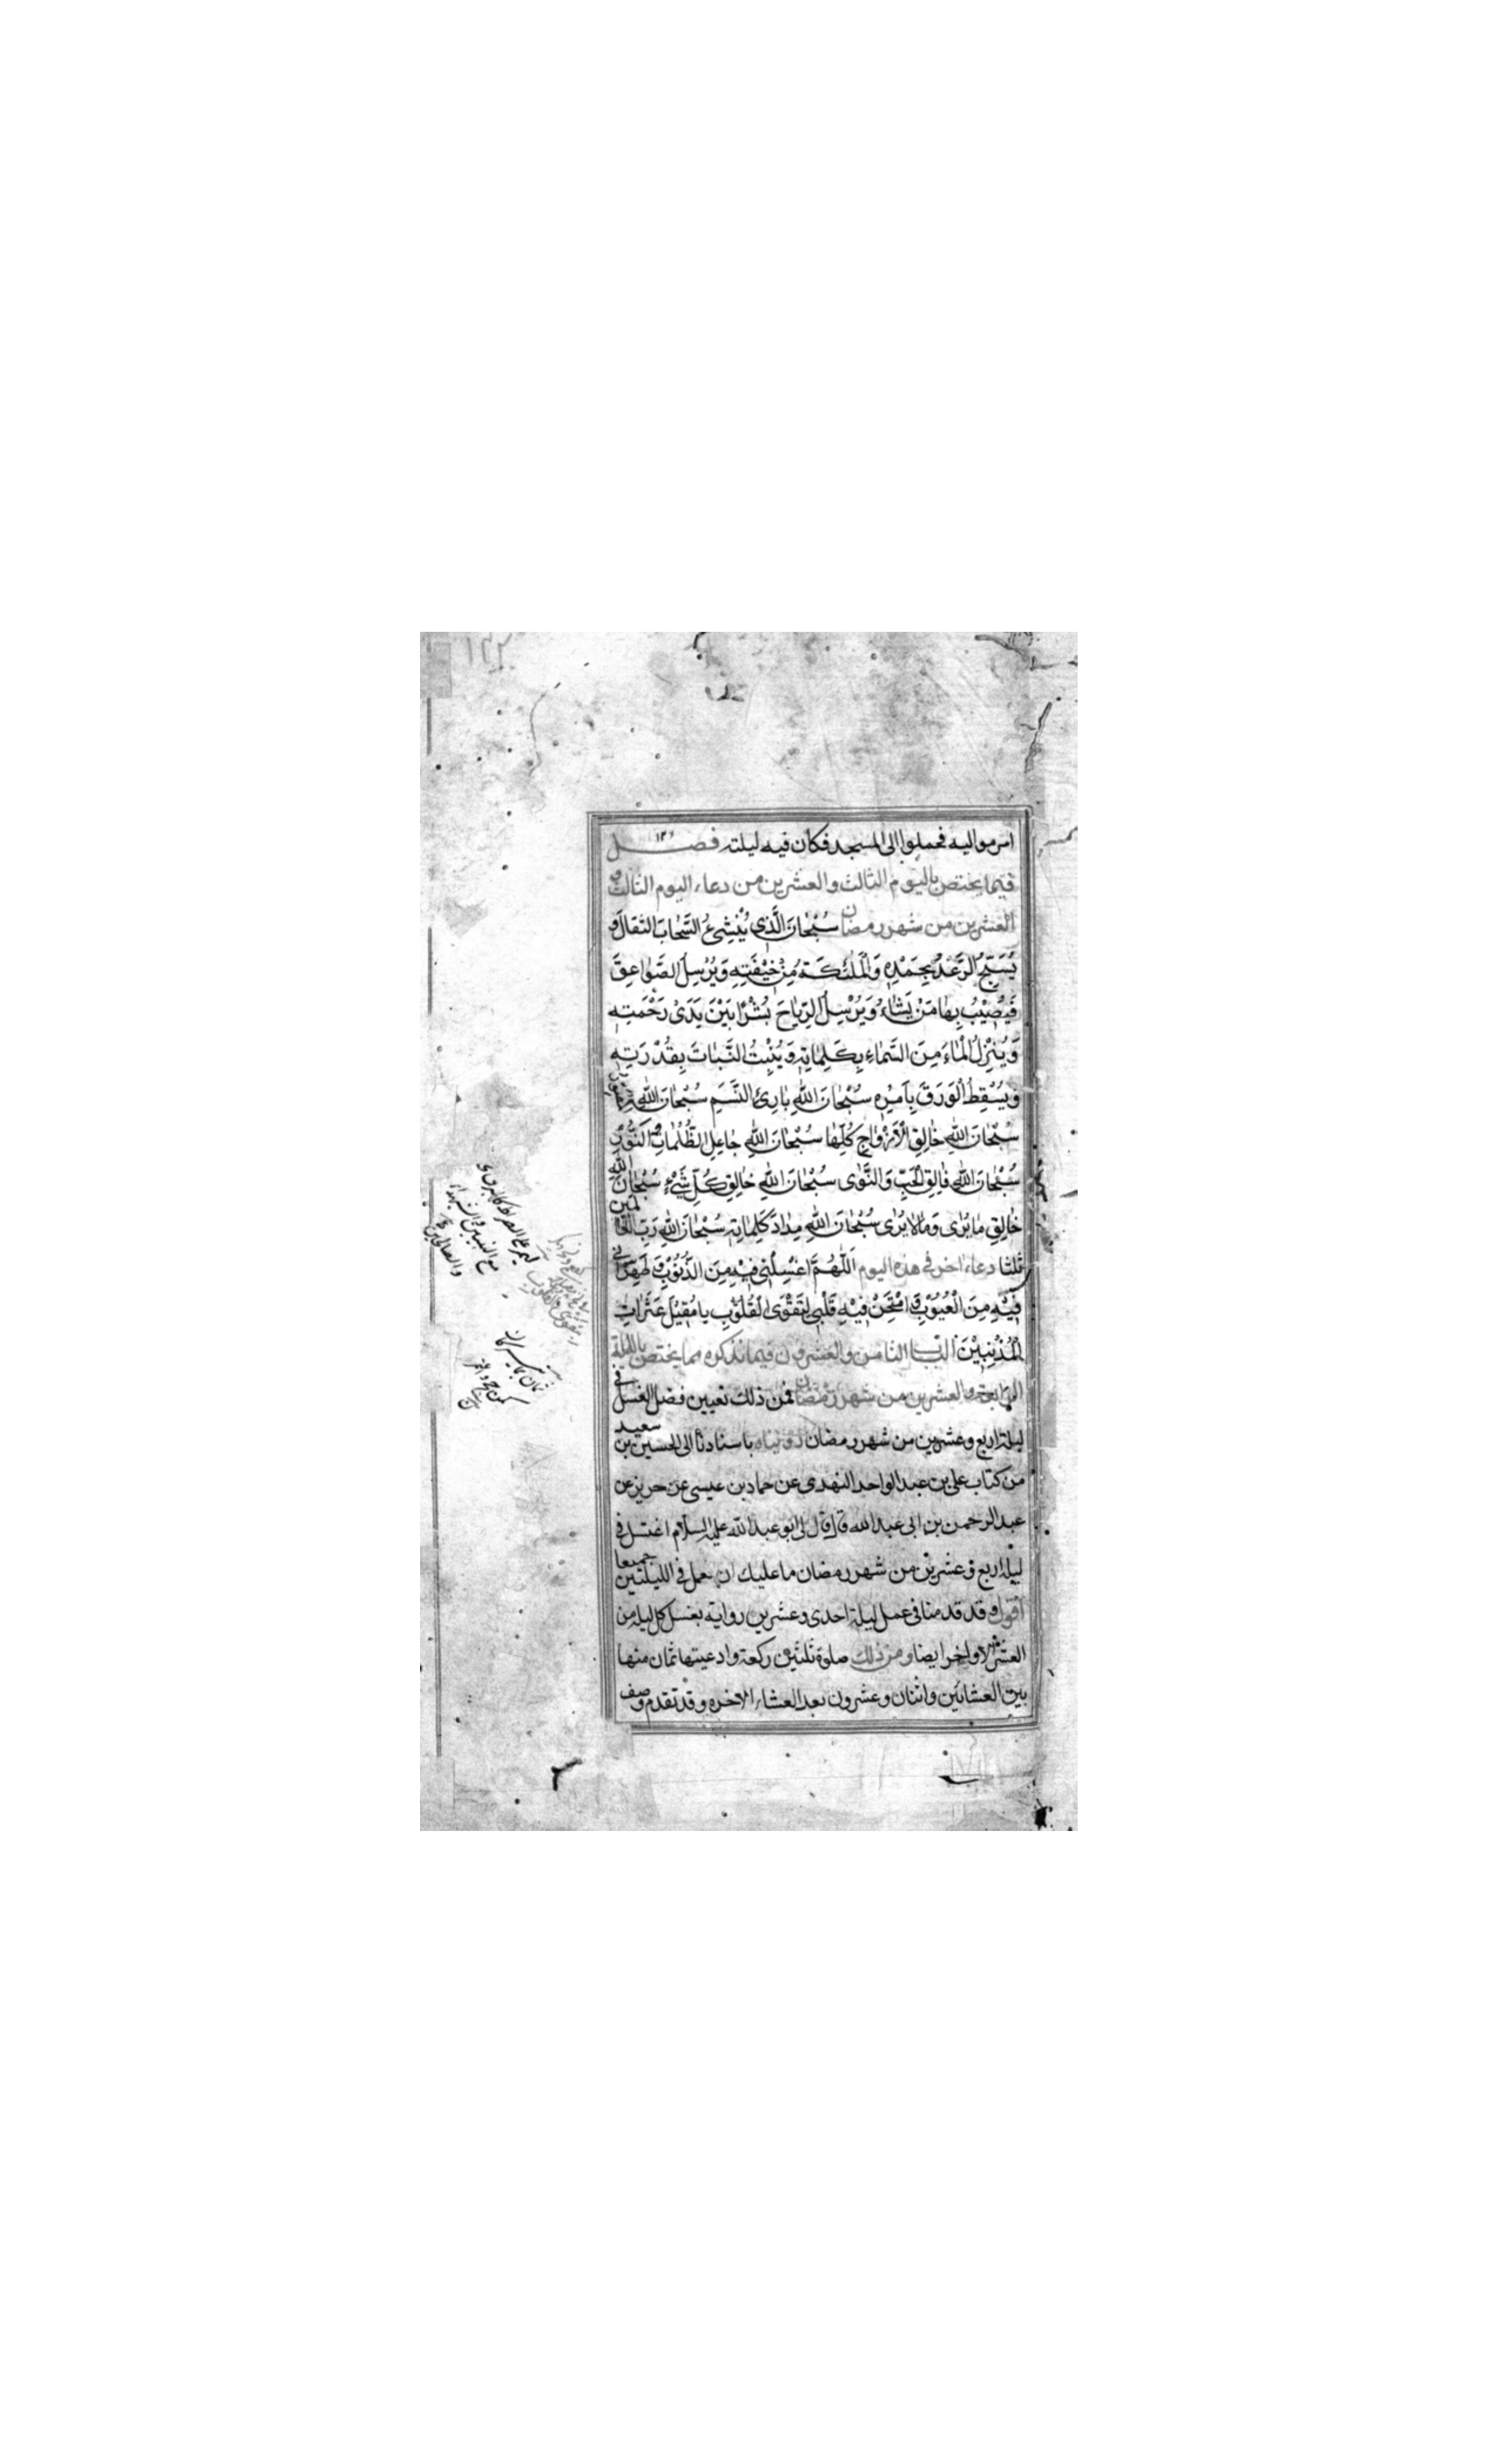 امر مواليه فحملوا الى المسجد فكان فيه ليلته فصل
فيما يختص باليوم الثالث والعشرين من دعاء اليوم الثالث و
العشرين من شهر رمضان سُبْحٰانَ الَّذي يُنْشِئُ السَّحٰابَ الثقٰالَ وَ
يُسَبِّحُ الرَّعْدُ بِحَمْدِهِ وَالْمَلٰئِكَةُ مِنْ خيْفَتِهِ وَيُرْسِلُ الصَّوٰاعِقَ
فَيُصيْبُ بِهٰا مَنْ يَشٰاءُ وَيُرْسِلُ الرِّيٰاحَ بُشْرًا بَيْنَ يَدَىْ رَحْمَتِهِ
وَيُنْزِلُ الْمٰاءَ مِنَ السَّمٰاءِ بِكَلِمٰاتِهِ وَيُنْبِتُ النَّبٰاتَ بِقُدْرَتِهِ
وَيُسْقِطُ الْوَرَقَ بِاَمْرِهِ سُبْحٰانَ اللهِ بٰارِئِ النَّسَمِ سُبْحٰانَ اللهِ
سُبْحٰانَ اللهِ خٰالِقِ الْاَزْوٰاجِ كُلِّهٰا سُبْحٰانَ اللهِ جٰاعِلِ الظُّلُمٰاتِ وَالنُّوْرِ
سُبْحٰانَ اللهِ فٰالِقِ الْحَبِّ وَالنَّوٰى سُبْحٰانَ اللهِ خٰالِقِ كُلِّ شَىْءٍ سُبْحٰانَ اللهِ
خٰالِقِ مٰا يُرٰى وَمٰا لٰا يُرٰى سُبْحٰانَ اللهِ مِدٰادَ كَلِمٰاتِهِ سُبْحٰانَ اللهِ رَبِّ الْعٰالَمين
ثلثا دعاء اخر فى هذه اليوم اَللّٰهُمَّ اغْسِلْني فيْهِ مِنَ الذُّنُوْبِ وَ طَهِّرْني
فيْهِ مِنَ الْعُيُوْبِ وَ امْتَحِنْ فيْهِ قَلْبي لِتَقْوَى الْقُلُوْبِ يٰا مُقيْلَ عَثَرٰاتِ
الْمُذْنِبيْنَ الباب الثامن والعشرون فيما نذكره مما يختص بالليلة
الرابعة والعشرين من شهر رمضان فمن ذلك تعيين فضل الغسل فى
ليلة اربع وعشرين من شهر رمضان رويناه باسنادنا الى الحسين بن سعيد
من كتاب على بن عبد الواحد النهدى عن حماد بن عيسى عن حريز عن
عبد الرحمن بن ابى عبد الله قال قال لى ابو عبد الله عليه السلام اغتسل فى
ليلة اربع وعشرين من شهر رمضان ما عليك ان تعمل فى الليلتين جميعا
اقول وقد قدمنا فى عمل ليلة احدى وعشرين رواية بغسل كل ليلة من
العشر الاواخر ايضا ومن ذلك صلوة ثلثين ركعة وادعيتها ثمان منها
بين العشائين واثنتان وعشرون بعد العشاء الاخره وقد تقدم وصف
مع النبيين والشهداء
والصالحين